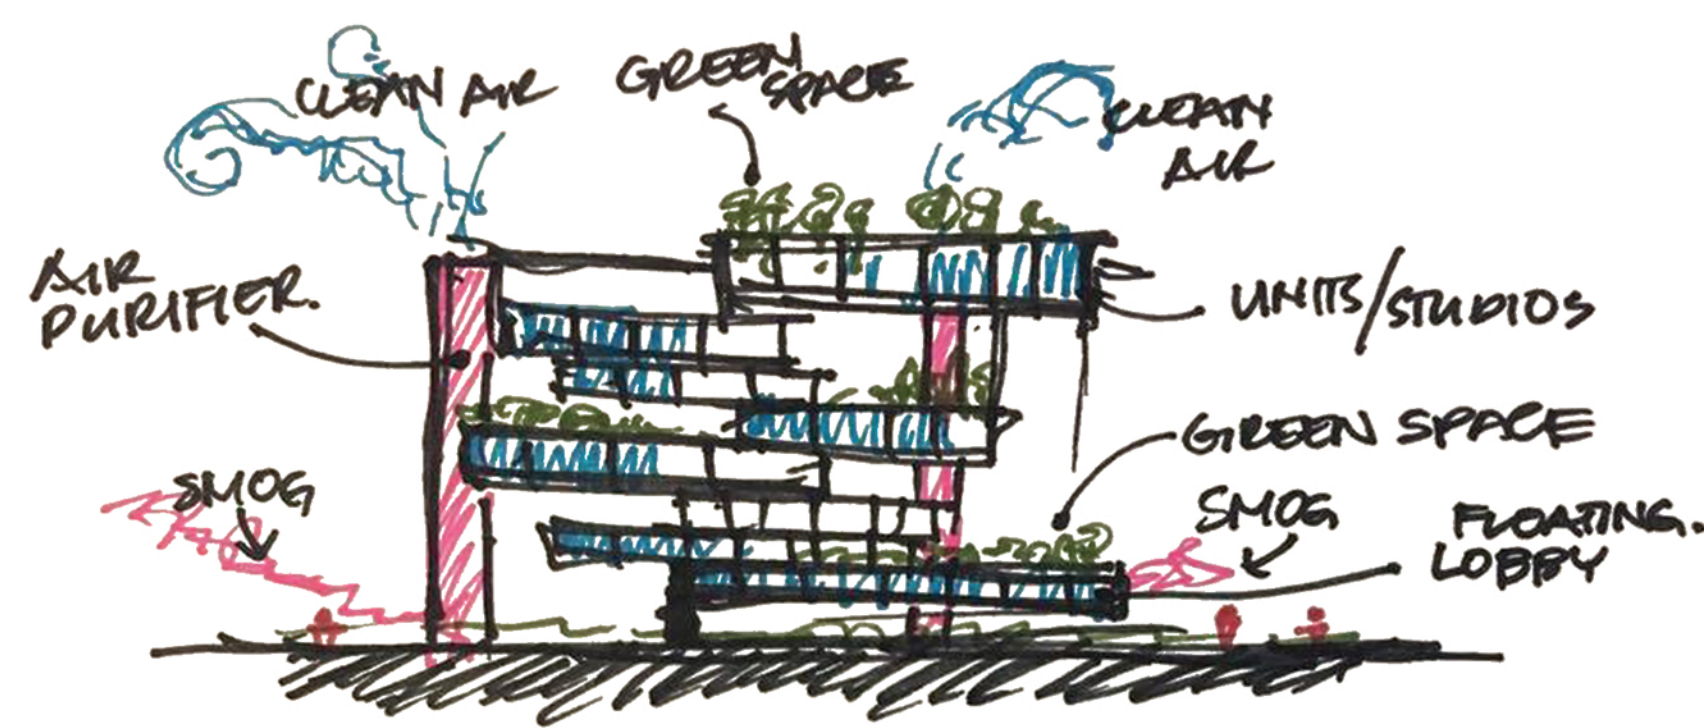 CLEAN AIR
GREEN
SPACE
CLEAN
AIR
AIR
PURIFIER.
UNITS/STUDIOS
GREEN SPACE
SMOG
SMOG
FLOATING.
LOBBY